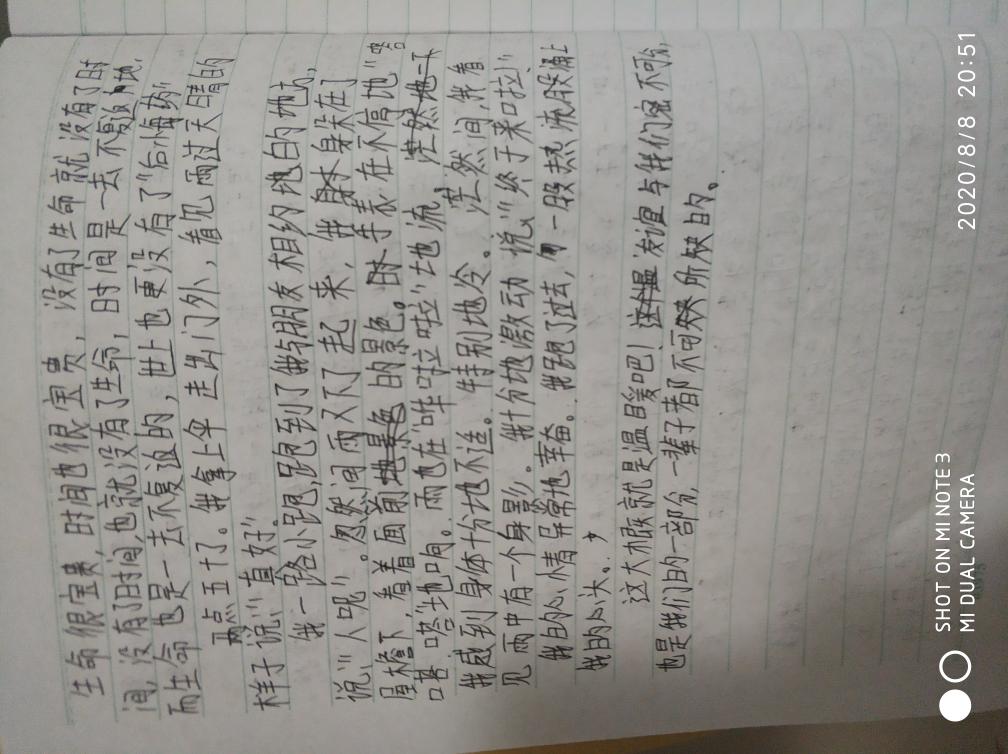 生命很宝贵，时间也很宝贵，没有了生命就没有了时
间，没有了时间，也就没有了生命，时间是一去不复返地，
而生命也是一去不复返的，世上也更没有了“后悔”
两点五十了。我拿上伞走出门外，看见雨过天晴的
样子说：“真好”。
我一路小跑，跑到了我与朋友相约地的地点，
说：“人呢”。忽然间雨又下了起来，我身躲在了
屋檐下，看着面前的景色。手表在不停地“嗒
嗒嗒”地响。雨也在“哗啦啦”地流，茫然地一下
我感到身体十分地不适。特别地冷。茫然间，我看
见雨中有一个身影。我十分地激动说：“终于来啦”
我的心情异常地幸奋。我跑了过去，一股热流股涌上
我的心头。
这大概就是温暖吧！友谊与我们密不可分，
也是我们的一部分，一辈子都不可所缺的。
SHOT ON MI NOTE 3
MI DUAL CAMERA
2020/8/8 20:51